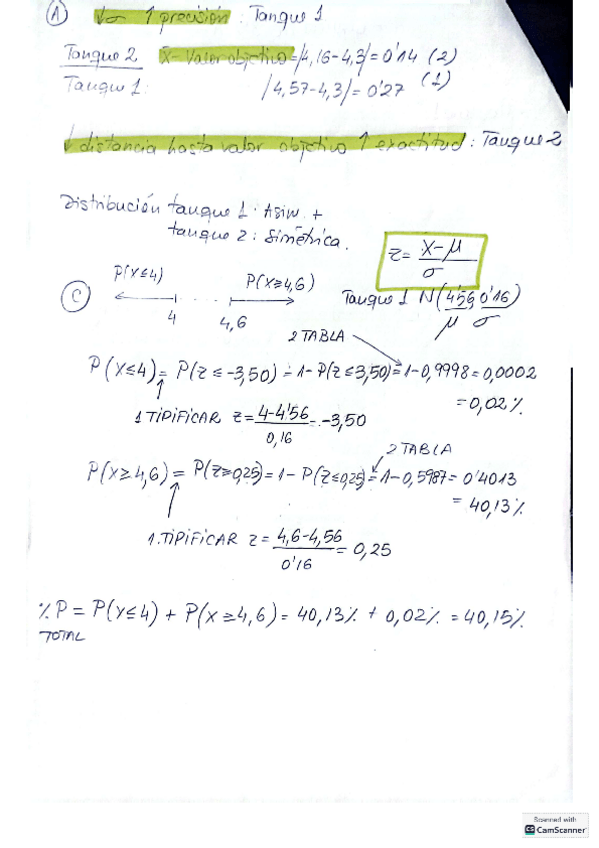 A ↓σ ↑ precisión : Tanque 1
Tanque 2 x̄ - Valor objetivo = |4,16-4,3| = 0'14 (2)
Tanque 1: |4,57-4,3| = 0'27 (1)
↓ distancia hasta valor objetivo ↑ exactitud : Tanque 2
Distribución tanque 1: Asim. +
tanque 2: Simétrica.
z = x-μ / σ
C P(x≤4) P(x≥4,6)
4 4,6
Tanque 1 N(4'56, 0'16)
μ σ
2 TABLA
P(x≤4) = P(z ≤ -3,50) = 1- P(z ≤ 3,50) = 1-0,9998 = 0,0002
= 0,02 %
1 TIPIFICAR z = 4-4'56 / 0,16 = -3,50
2 TABLA
P(x≥4,6) = P(z≥0,25) = 1 - P(z≤0,25) = 1-0,5987 = 0'4013
= 40,13 %
1. TIPIFICAR z = 4,6-4,56 / 0'16 = 0,25
% P = P(x≤4) + P(x≥4,6) = 40,13% + 0,02% = 40,15%
TOTAL
Scanned with
CS CamScanner